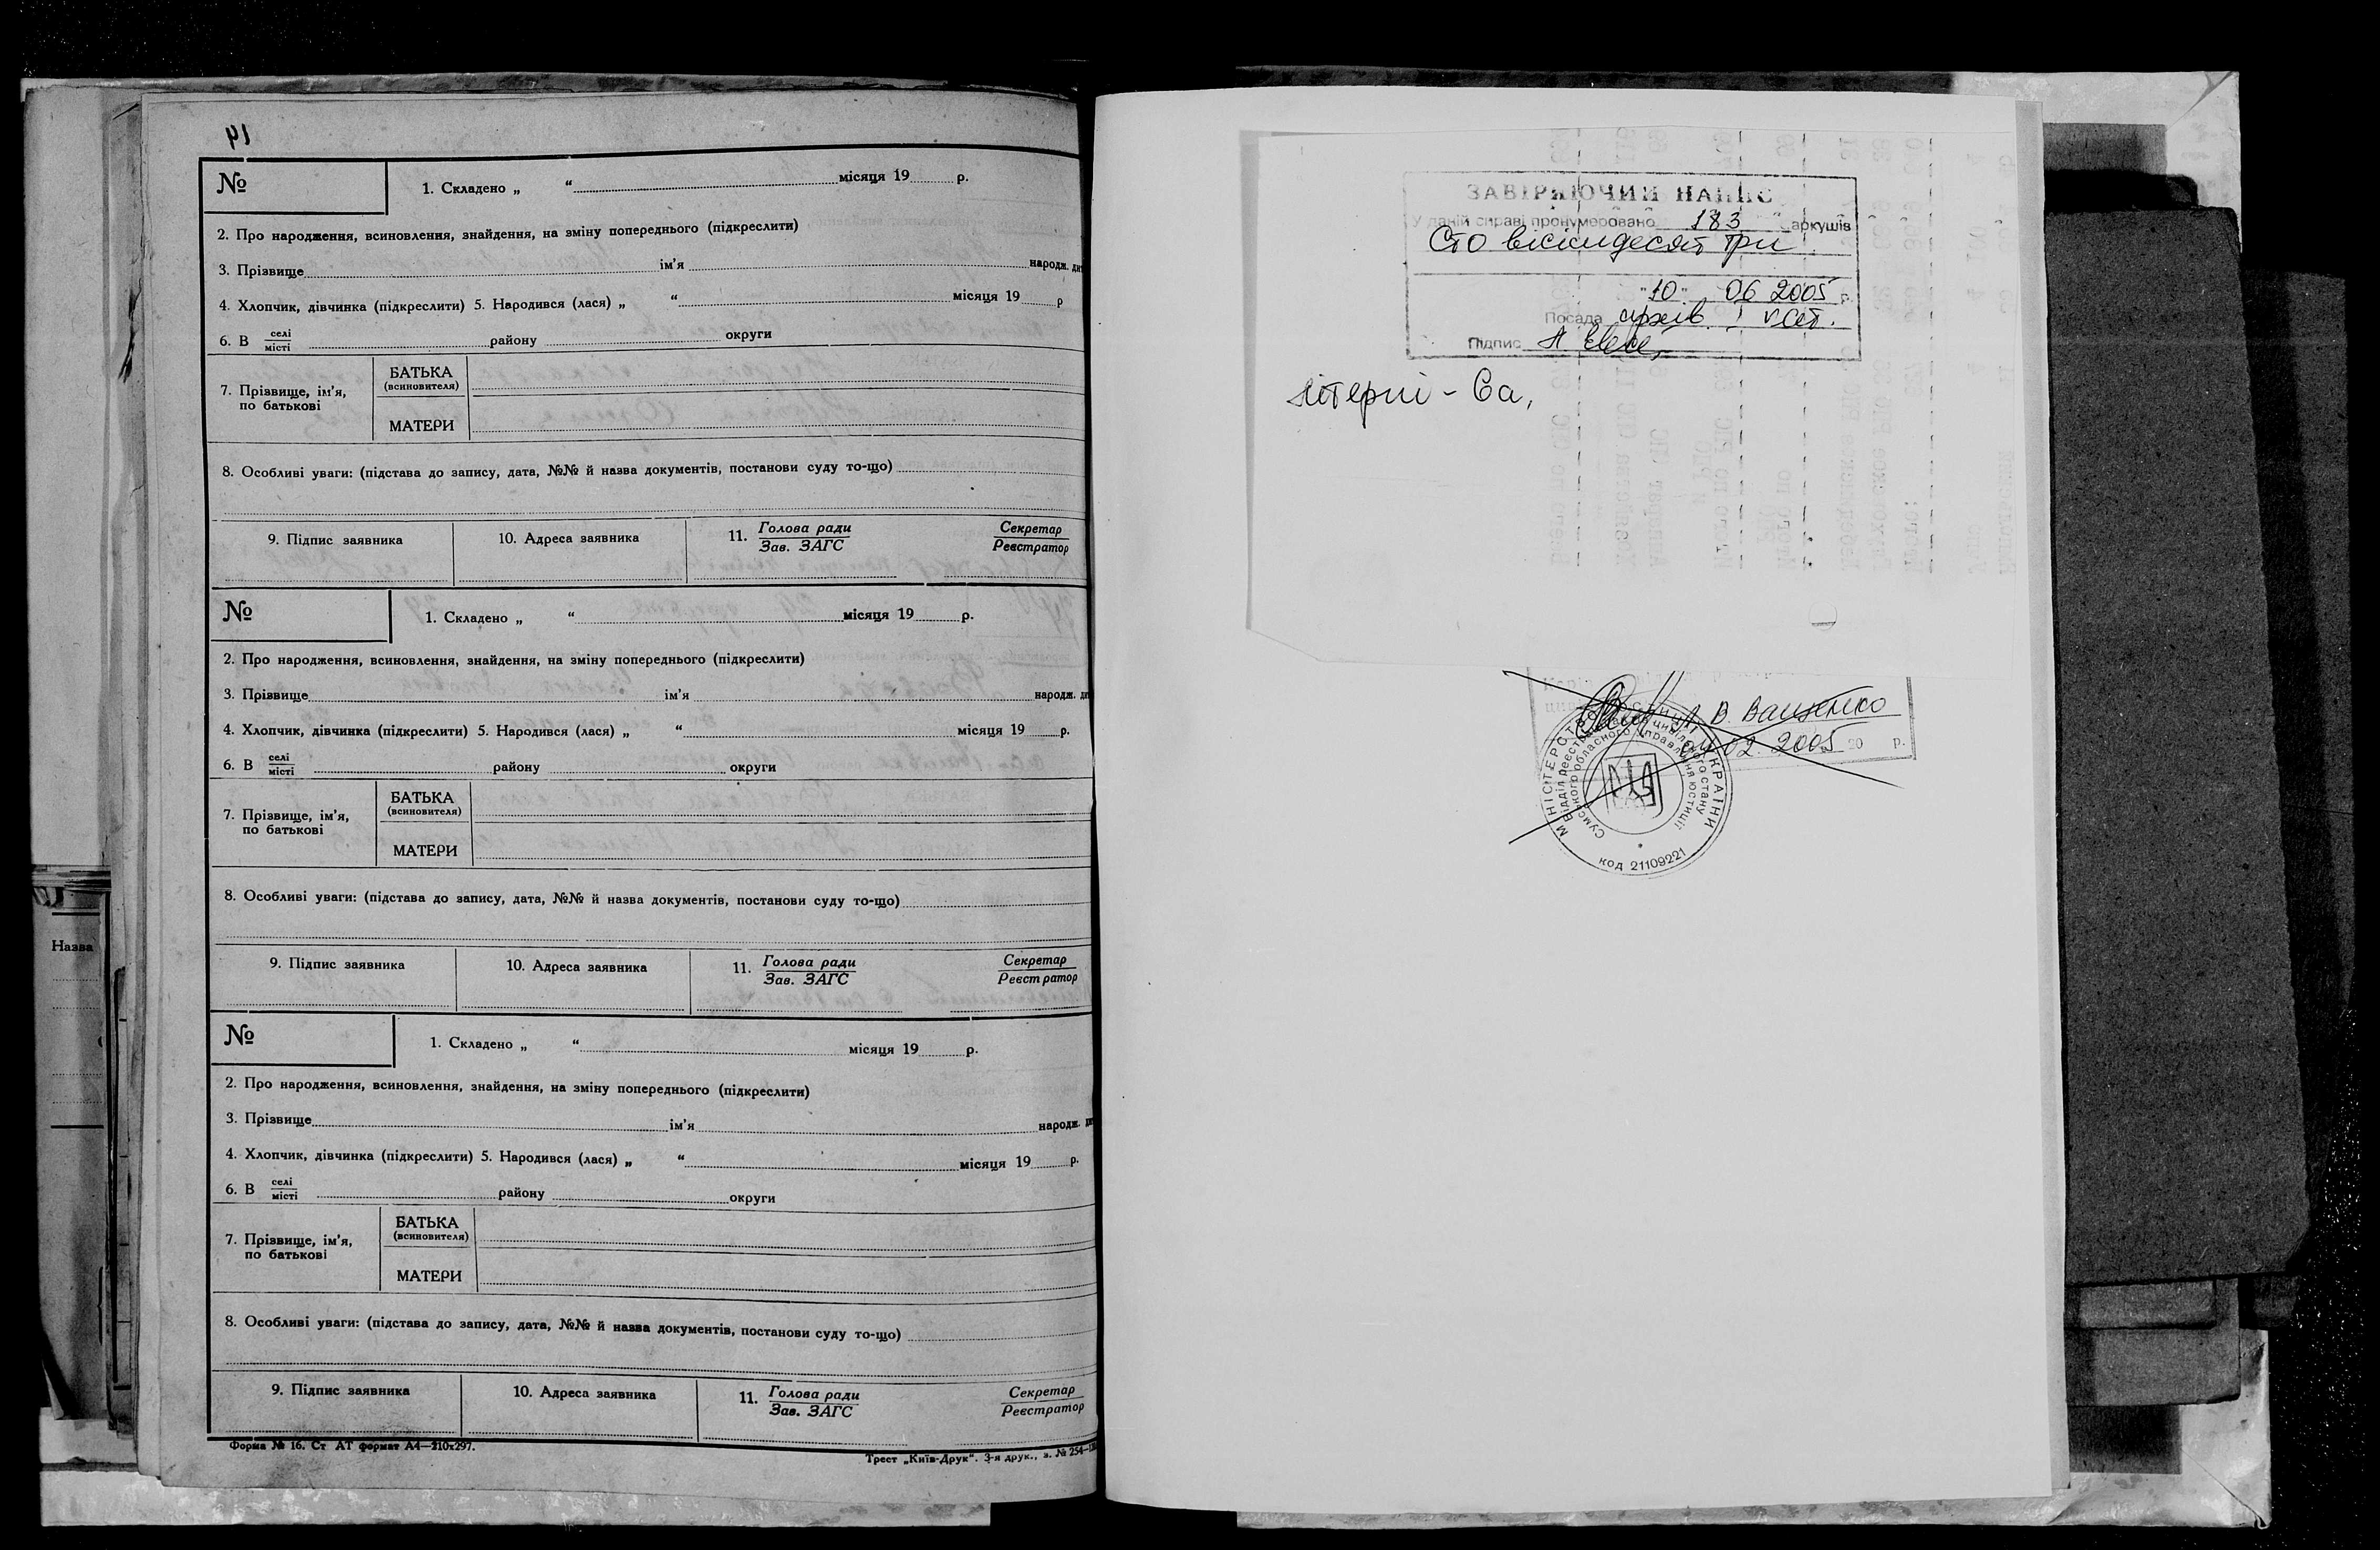 №
1. Складено „ “ місяця 19 р.
2. Про народження, всиновлення, знайдення, на зміну попереднього (підкреслити)
3. Прізвище ім’я народж.
4. Хлопчик, дівчинка (підкреслити) 5. Народився (лася) „ “ місяця 19 р
6. В селі місті району округи
7. Прізвище, ім’я, по батькові
БАТЬКА (всиновителя)
МАТЕРИ
8. Особливі уваги: (підстава до запису, дата, №№ й назва документів, постанови суду то-що)
9. Підпис заявника 10. Адреса заявника 11. Голова ради Зав. ЗАГС Секретар Реєстратор
№
1. Складено „ “ місяця 19 р.
2. Про народження, всиновлення, знайдення, на зміну попереднього (підкреслити)
3. Прізвище ім’я народж.
4. Хлопчик, дівчинка (підкреслити) 5. Народився (лася) „ “ місяця 19 р.
6. В селі місті району округи
7. Прізвище, ім’я, по батькові
БАТЬКА (всиновителя)
МАТЕРИ
8. Особливі уваги: (підстава до запису, дата, №№ й назва документів, постанови суду то-що)
9. Підпис заявника 10. Адреса заявника 11. Голова ради Зав. ЗАГС Секретар Реєстратор
№
1. Складено „ “ місяця 19 р.
2. Про народження, всиновлення, знайдення, на зміну попереднього (підкреслити)
3. Прізвище ім’я народж.
4. Хлопчик, дівчинка (підкреслити) 5. Народився (лася) „ “ місяця 19 р.
6. В селі місті району округи
7. Прізвище, ім’я, по батькові
БАТЬКА (всиновителя)
МАТЕРИ
8. Особливі уваги: (підстава до запису, дата, №№ й назва документів, постанови суду то-що)
9. Підпис заявника 10. Адреса заявника 11. Голова ради Зав. ЗАГС Секретар Реєстратор
Форма № 16. Ст АТ формат А4—210х297.
Трест „Київ-Друк“. 3-я друк., з. № 254
Назва
ЗАВІРЯЮЧИЙ НАПИС
У даній справі пронумеровано 183 аркушів
Сто вісімдесят три
"10" 06 2005 р.
Посада архів.
Підпис
літерні - 6а,
В. Ващенко
02. 2005 20 р.
МІНІСТЕРСТВО ЮСТИЦІЇ УКРАЇНИ
Відділ реєстрації актів цивільного стану
Сумського обласного управління юстиції
код 21109221